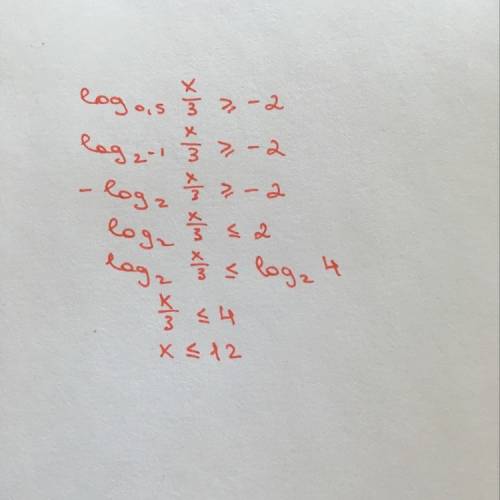 log₀,₅ x/3 ≥ -2
log₂₋₁ x/3 ≥ -2
- log₂ x/3 ≥ -2
log₂ x/3 ≤ 2
log₂ x/3 ≤ log₂ 4
x/3 ≤ 4
x ≤ 12